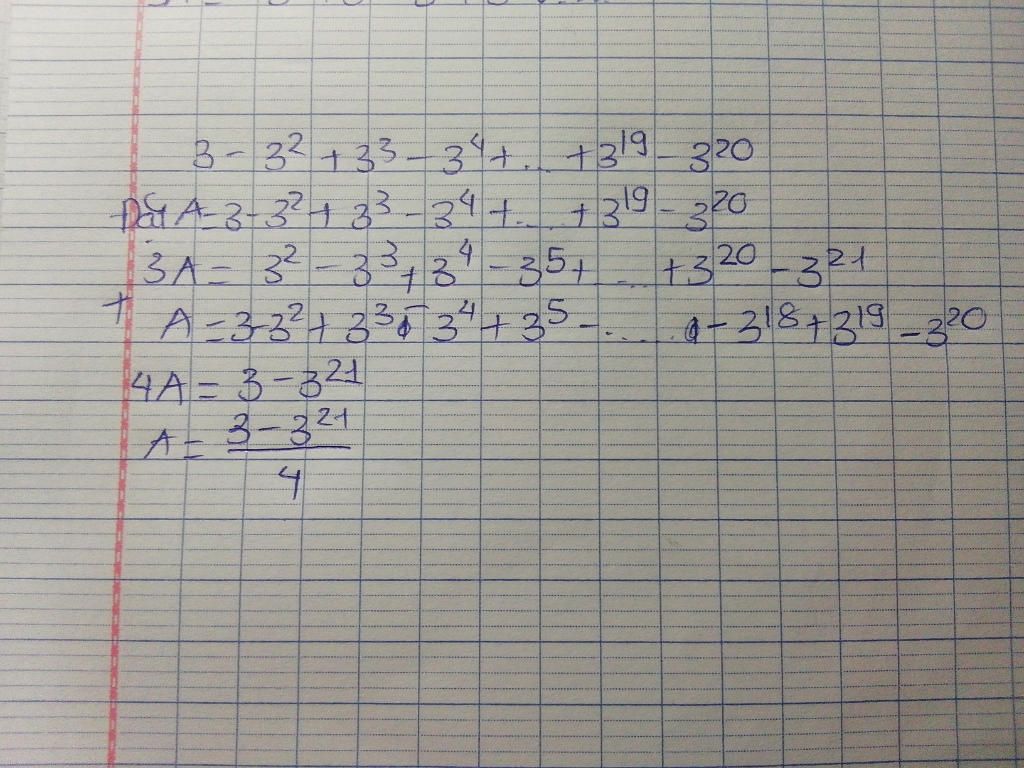 3 - 3² + 3³ - 3⁴ + ... + 3¹⁹ - 3²⁰
Đặt A = 3 - 3² + 3³ - 3⁴ + .... + 3¹⁹ - 3²⁰
3A = 3² - 3³ + 3⁴ - 3⁵ + .... + 3²⁰ - 3²¹
+ A = 3 - 3² + 3³ - 3⁴ + 3⁵ - ..... - 3¹⁸ + 3¹⁹ - 3²⁰
4A = 3 - 3²¹
A = 3 - 3²¹
4